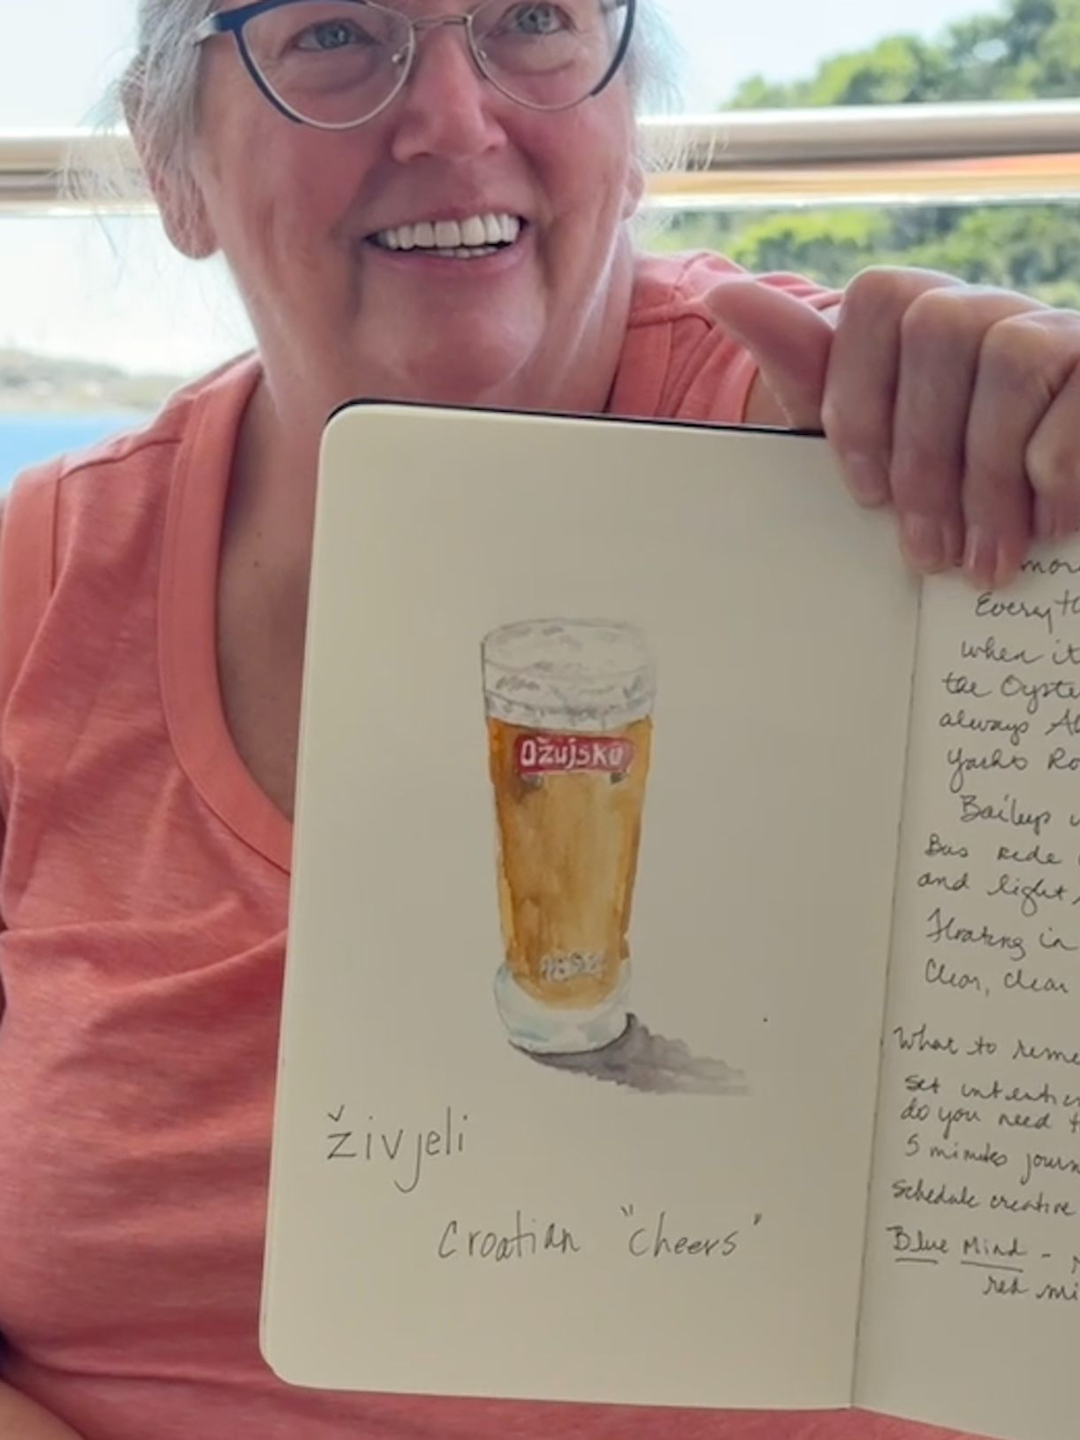 Ožujsko
1892
živjeli
Croatian "cheers"
when it
the Oyste
always Al
Yachts Ro
Bus ride
and light
Floating in
Clear, clear
What to reme
Set intentio
do you need t
5 minutes journ
Schedule creative
Blue Mind -
red mi